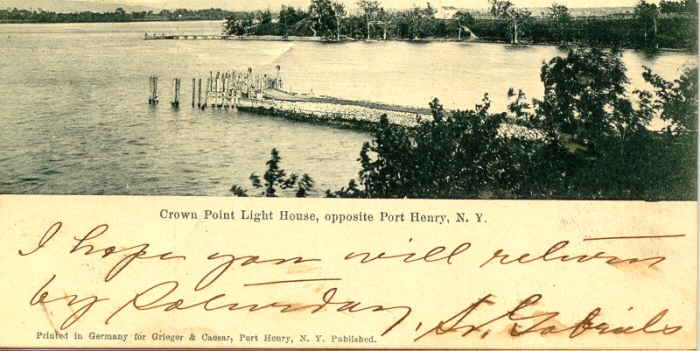 Crown Point Light House, opposite Port Henry, N. Y.
I hope you will return
by Saturday, Sr. Gabriels
Printed in Germany for Grieger & Caesar, Port Henry, N. Y. Published.